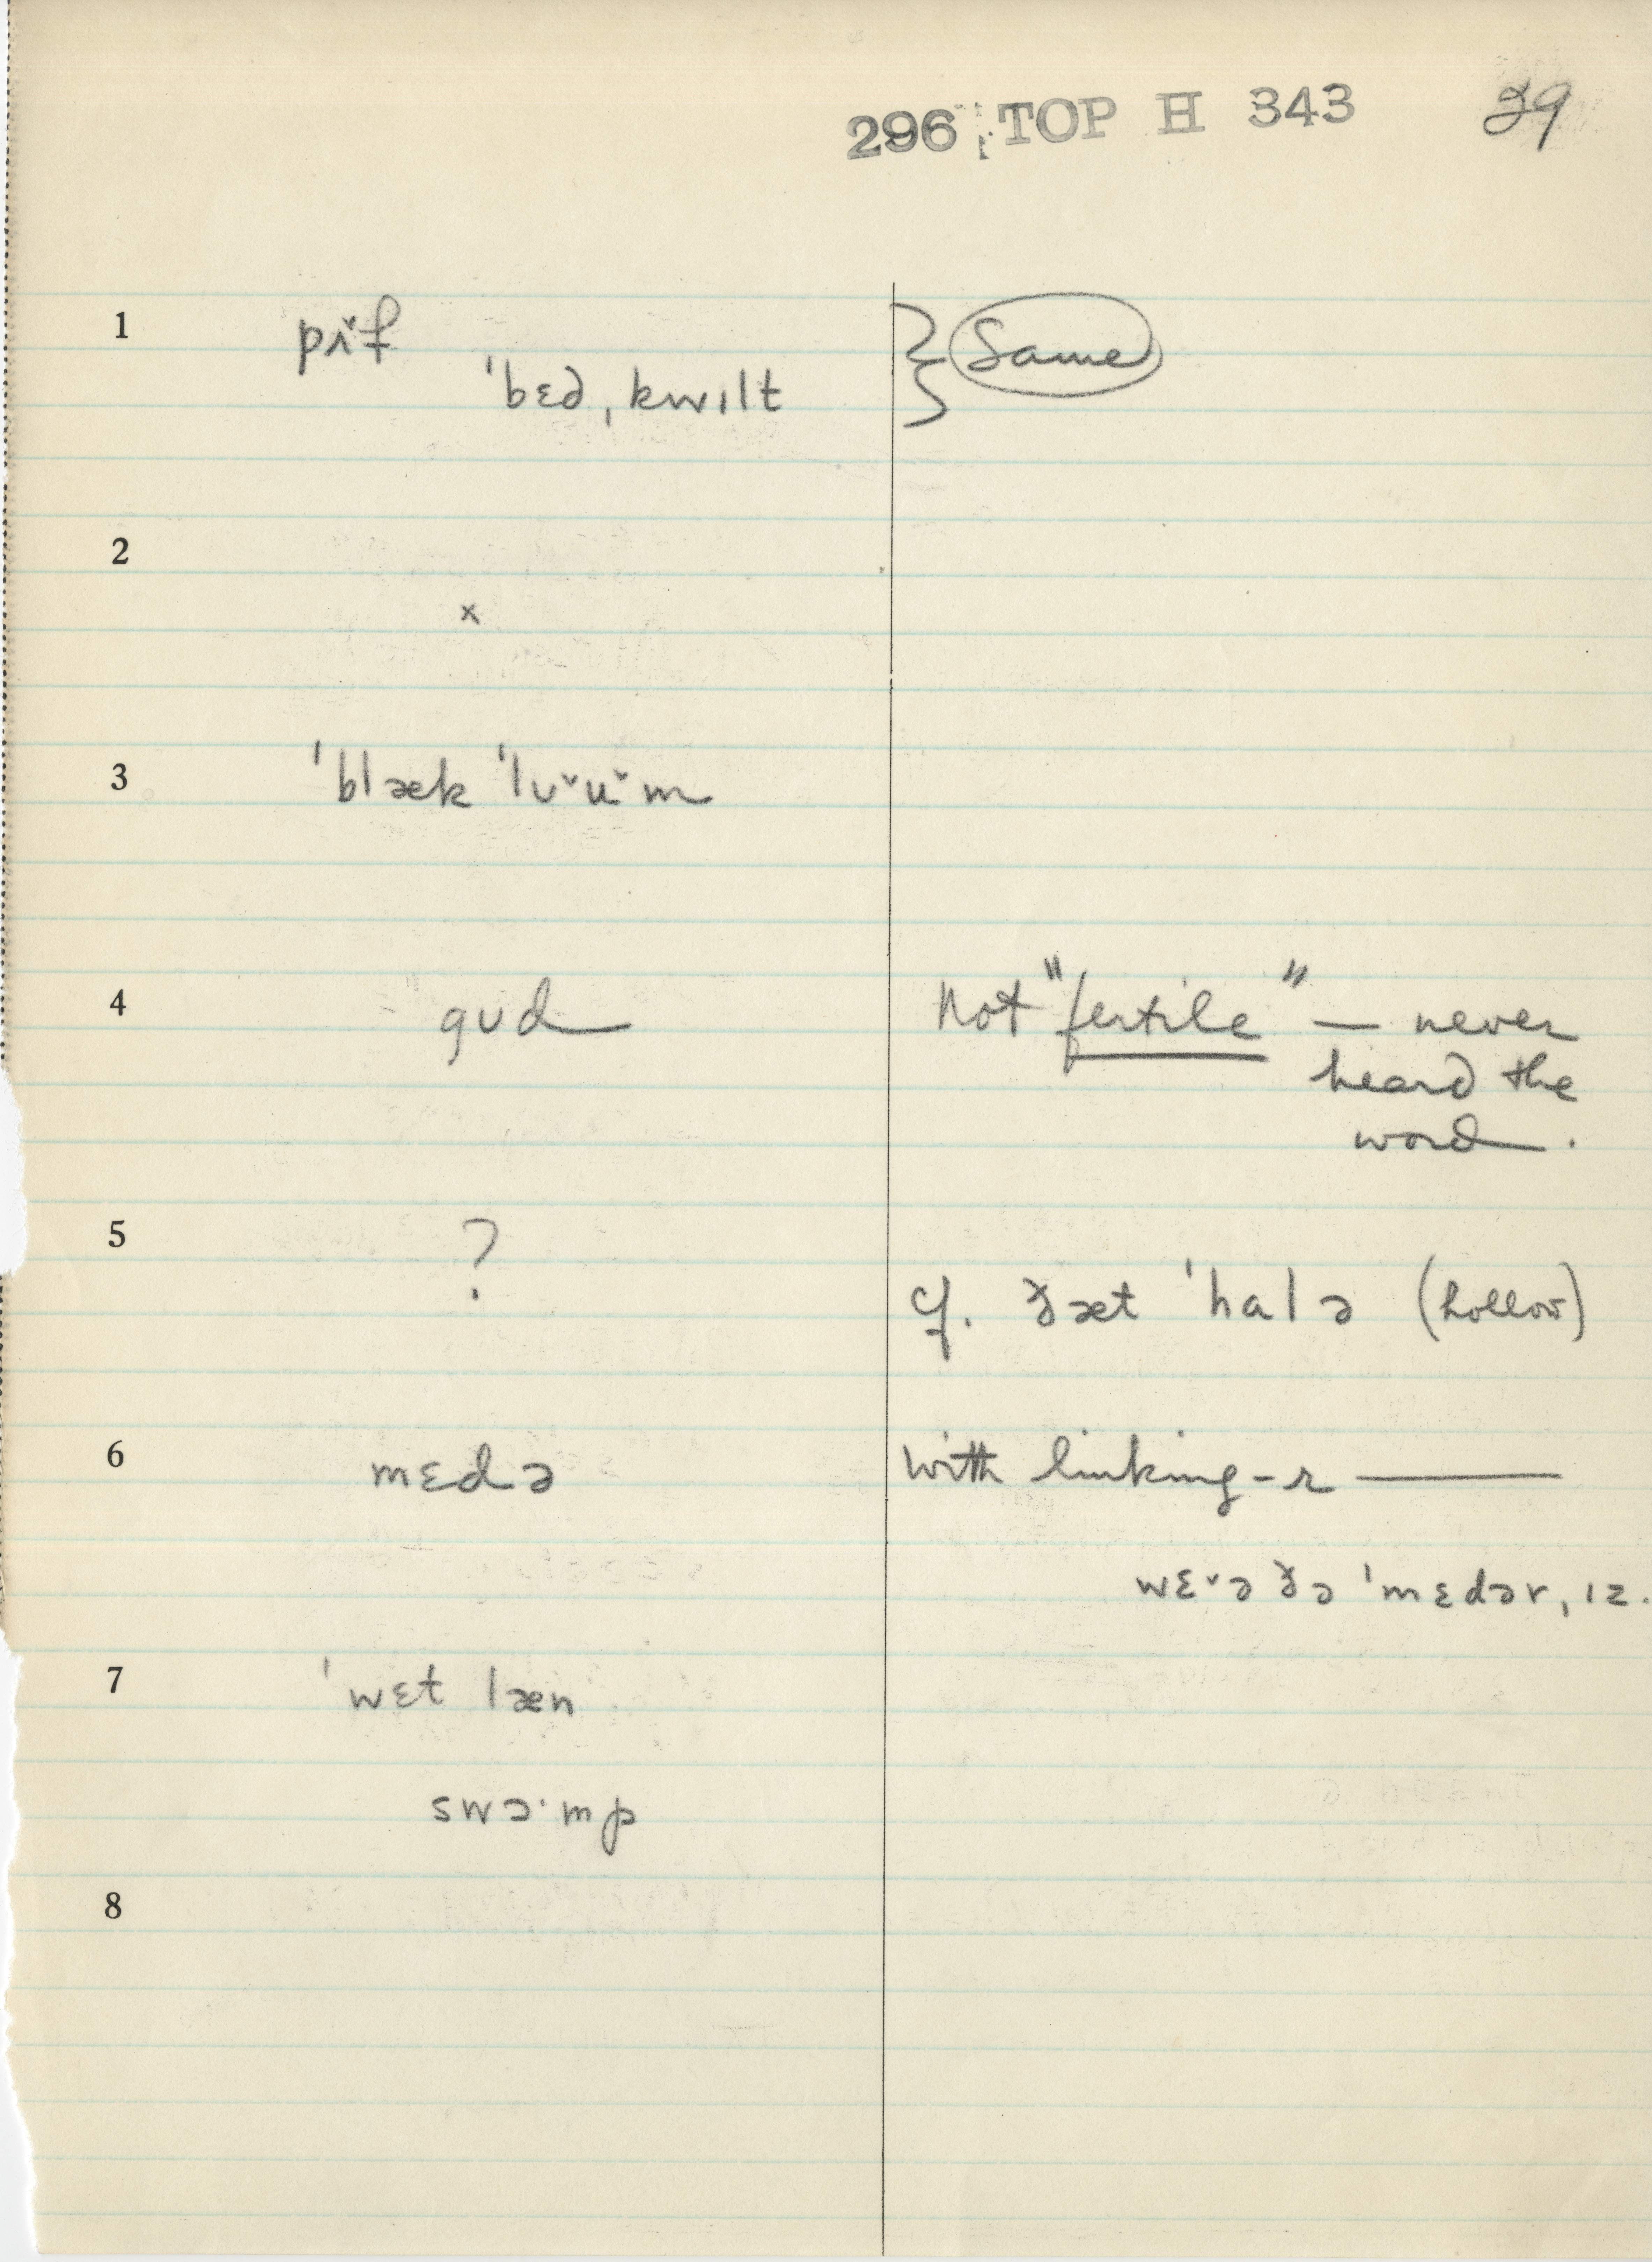 296 TOP H 343 29
1 pʌ˅f } Same
ˈbɛd ˌkwɪlt
2
x
3 ˈblæk ˈlʊ˅u˅m
4 gʊd not "fertile" — never
heard the
word.
5 ?
cf. ðæt ˈhalə (hollow)
6 mɛdə with linking-r ———
wɛ˅ə ðə ˈmɛdər ˌɪz.
7 ˈwɛt læn
swɔ·mp
8